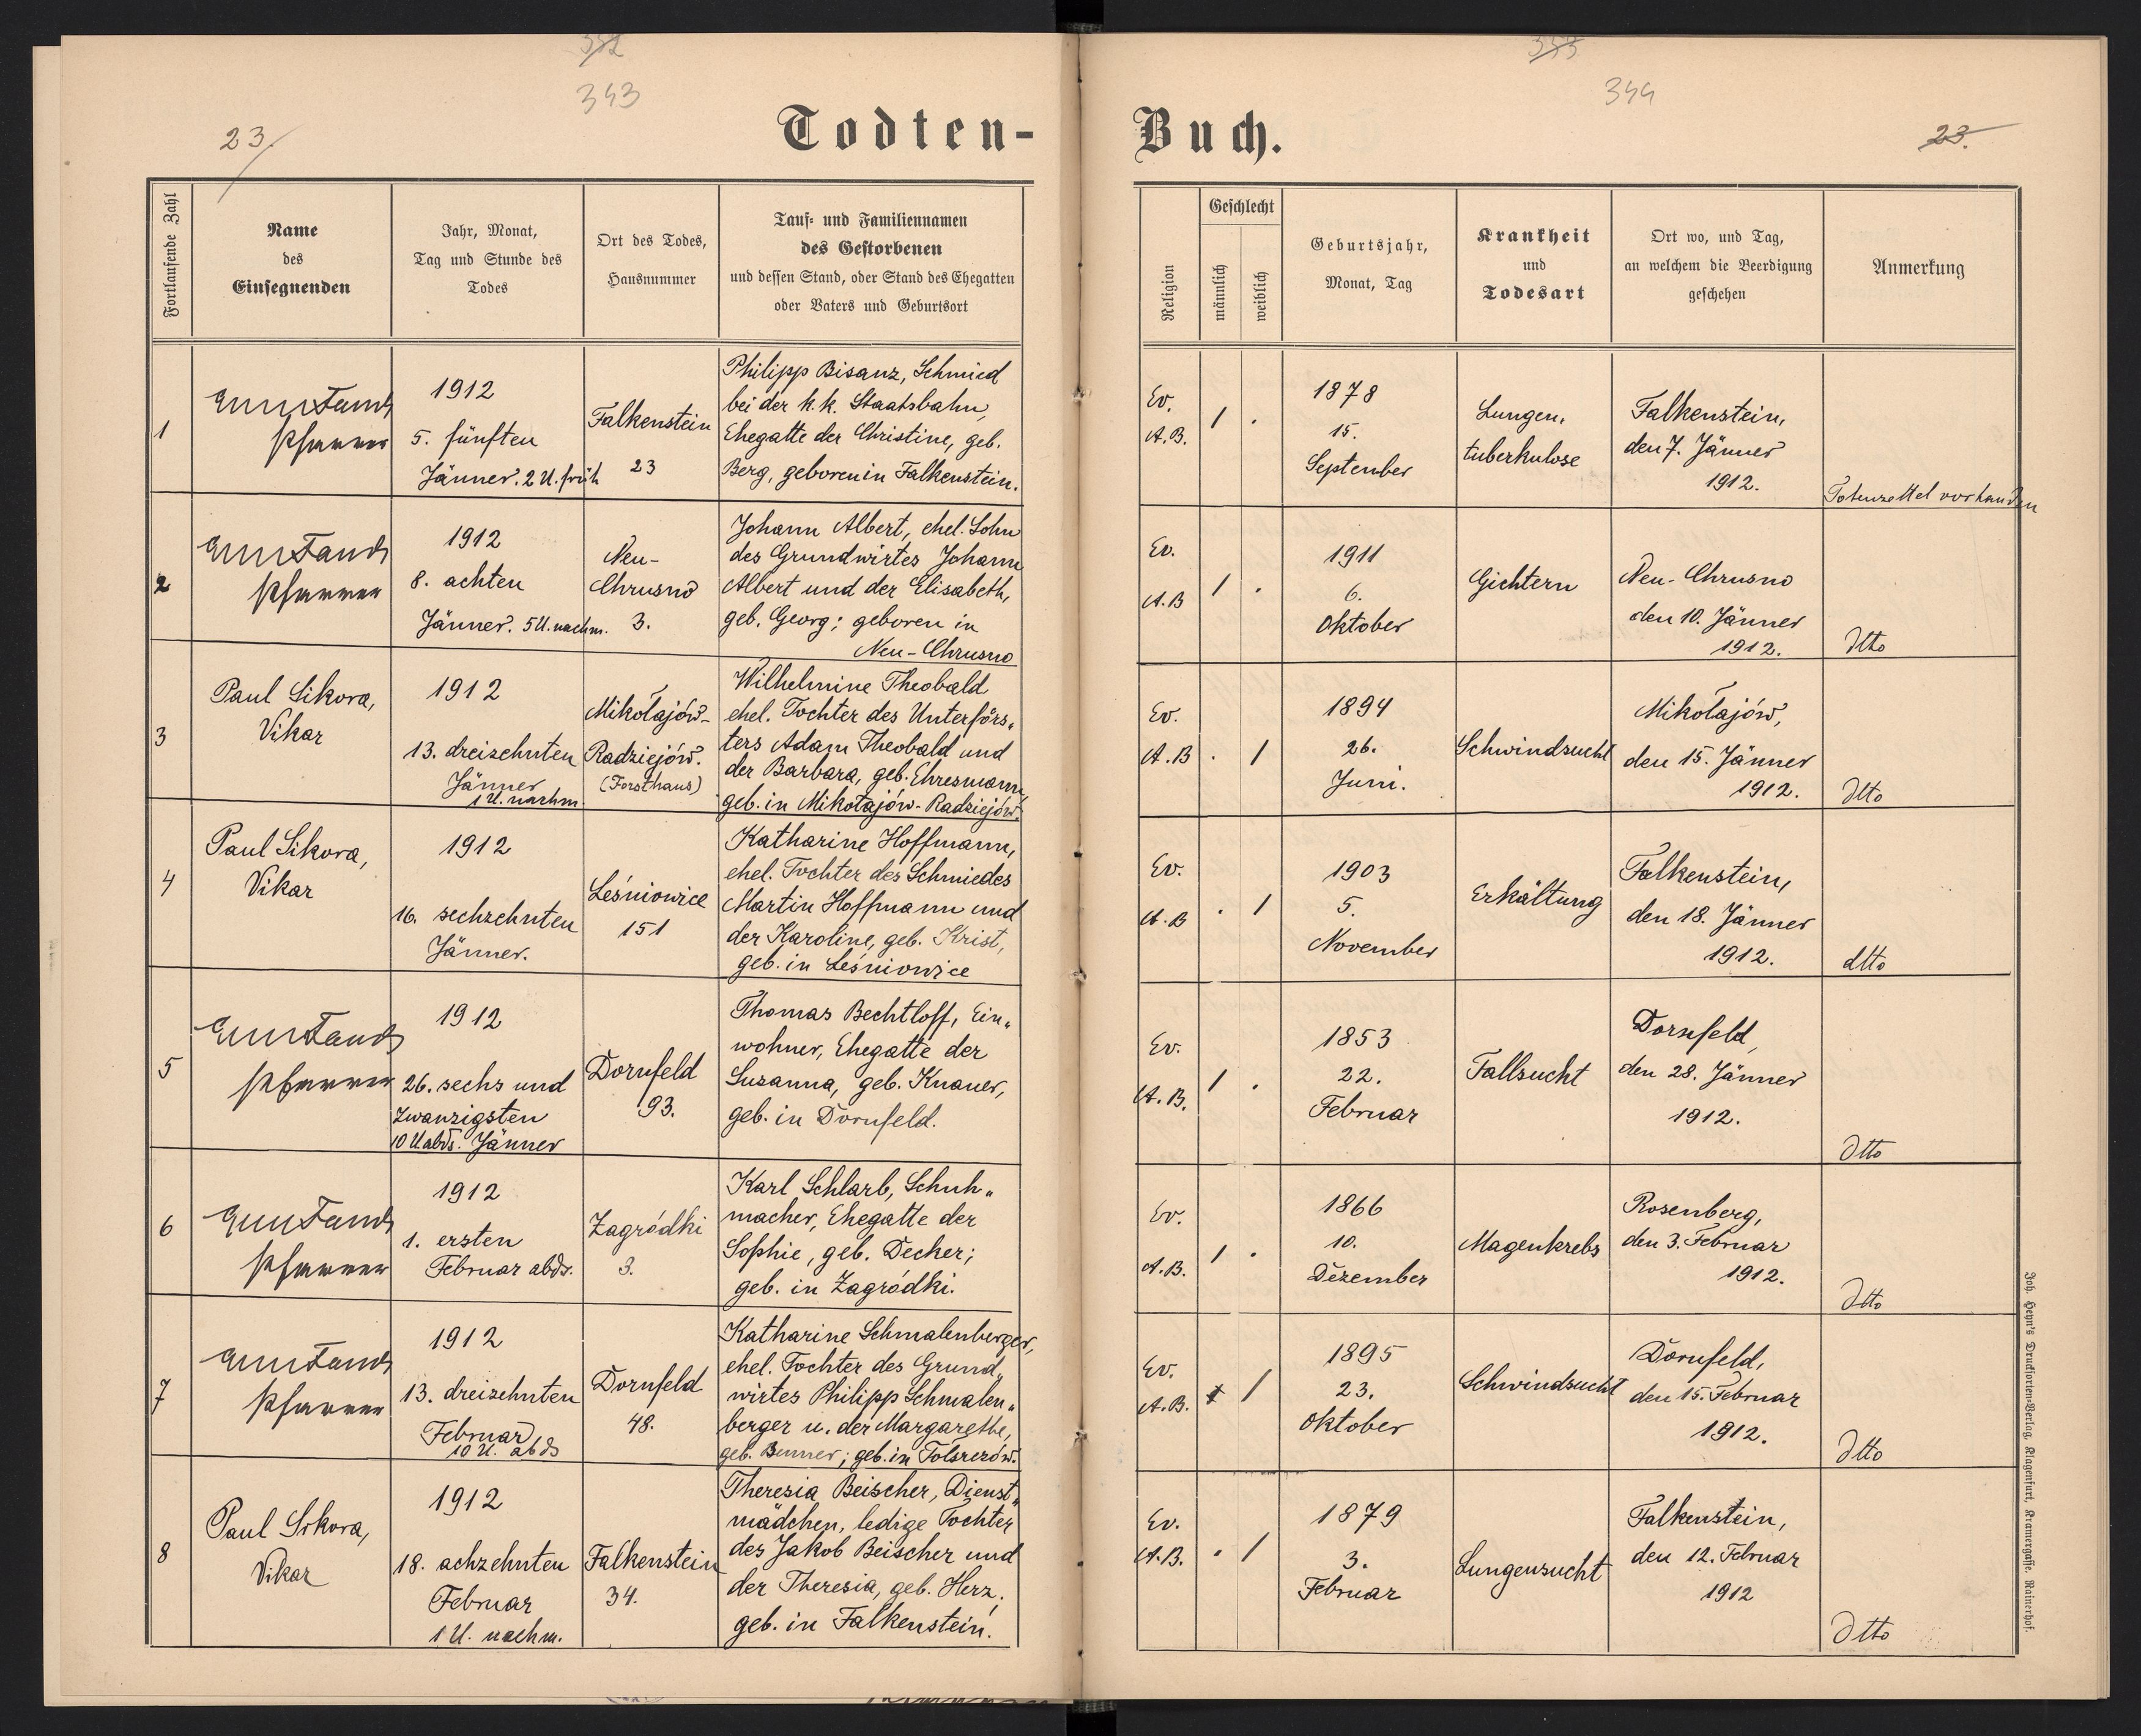 352
343
23.
Todten-
Fortlaufende Zahl
Name
des
Einsegnenden
Jahr, Monat,
Tag und Stunde des
Todes
Ort des Todes,
Hausnummer
Tauf- und Familiennamen
des Gestorbenen
und dessen Stand, oder Stand des Ehegatten
oder Vaters und Geburtsort
1
Pfarrer
1912
5. fünften
Jänner. 2 U. früh
Falkenstein
23
Philipp Bisanz, Schmied
bei der k.k. Staatsbahn,
Ehegatte der Christine, geb.
Berg, geboren in Falkenstein.
2
Pfarrer
1912
8. achten
Jänner. 5 U. nachm.
Neu-
Chrusno
3.
Johann Albert, ehel. Sohn
des Grundwirtes Johann
Albert und der Elisabeth,
geb. Georg; geboren in
Neu-Chrusno
3
Paul Sikora,
Vikar
1912
13. dreizehnten
Jänner
1 U. nachm
Mikołajów-
Radziejów.
(Forsthaus)
Wilhelmine Theobald
ehel. Tochter des Unterförs„
ters Adam Theobald und
der Barbara, geb. Ehresmann,
geb. in Mikołajów-Radziejów.
4
Paul Sikora,
Vikar
1912
16. sechzehnten
Jänner.
Leśniowice
151
Katharine Hoffmann,
ehel. Tochter des Schmiedes
Martin Hoffmann und
der Karoline, geb. Krist,
geb. in Leśniowice
5
Pfarrer
1912
26. sechs und
zwanzigsten
10 U. abds. Jänner
Dornfeld
93.
Thomas Bechtloff, Ein„
wohner, Ehegatte der
Susanna, geb. Knauer,
geb. in Dornfeld.
6
Pfarrer
1912
1. ersten
Februar abds.
Zagródki
3.
Karl Schlarb, Schuh„
macher, Ehegatte der
Sophie, geb. Decker;
geb. in Zagródki.
7
Pfarrer
1912
13. dreizehnten
Februar
10 U. abds
Dornfeld
48.
Katharine Schmalenberger,
ehel. Tochter des Grund„
wirtes Philipp Schmalen„
berger u. der Margarethe,
geb. Benner; geb. in Tolszczów.
8
Paul Sikora,
Vikar
1912
18. achzehnten
Februar
1 U. nachm.
Falkenstein
34.
Theresia Beischer, Dienst„
mädchen, ledige Tochter
des Jakob Beischer und
der Theresia, geb. Herz,
geb. in Falkenstein.
344
Buch.
23.
Religion
Geschlecht
männlich
weiblich
Geburtsjahr,
Monat, Tag
Krankheit
und
Todesart
Ort wo, und Tag,
an welchem die Beerdigung
geschehen
Anmerkung
Ev.
A.B.
1 .
1878
15.
September
Lungen„
tuberkulose
Falkenstein,
den 7. Jänner
1912.
Totenzettel vorhanden
Ev.
A.B
1 .
1911
6.
Oktober
Gichtern
Neu-Chrusno
den 10. Jänner
1912.
dtto
Ev.
A.B
. 1
1894
26.
Juni.
Schwindsucht
Mikołajów,
den 15. Jänner
1912.
dtto
Ev.
A.B
. 1
1903
5.
November
Erkältung
Falkenstein,
den 18. Jänner
1912.
dtto
Ev.
A.B.
1 .
1853
22.
Februar
Fallsucht
Dornfeld,
den 28. Jänner
1912.
dtto
Ev.
A.B.
1 .
1866
10.
Dezember
Magenkrebs
Rosenberg,
den 3. Februar
1912.
dtto
Ev.
A.B.
1
1895
23.
Oktober
Schwindsucht
Dornfeld,
den 15. Februar
1912.
dtto
Ev.
A.B.
. 1
1879
3.
Februar
Lungensucht
Falkenstein,
den 12. Februar
1912
dtto
Joh. Heyn's Drucksorten-Verlag, Klagenfurt, Kramergasse, Rainerhof.